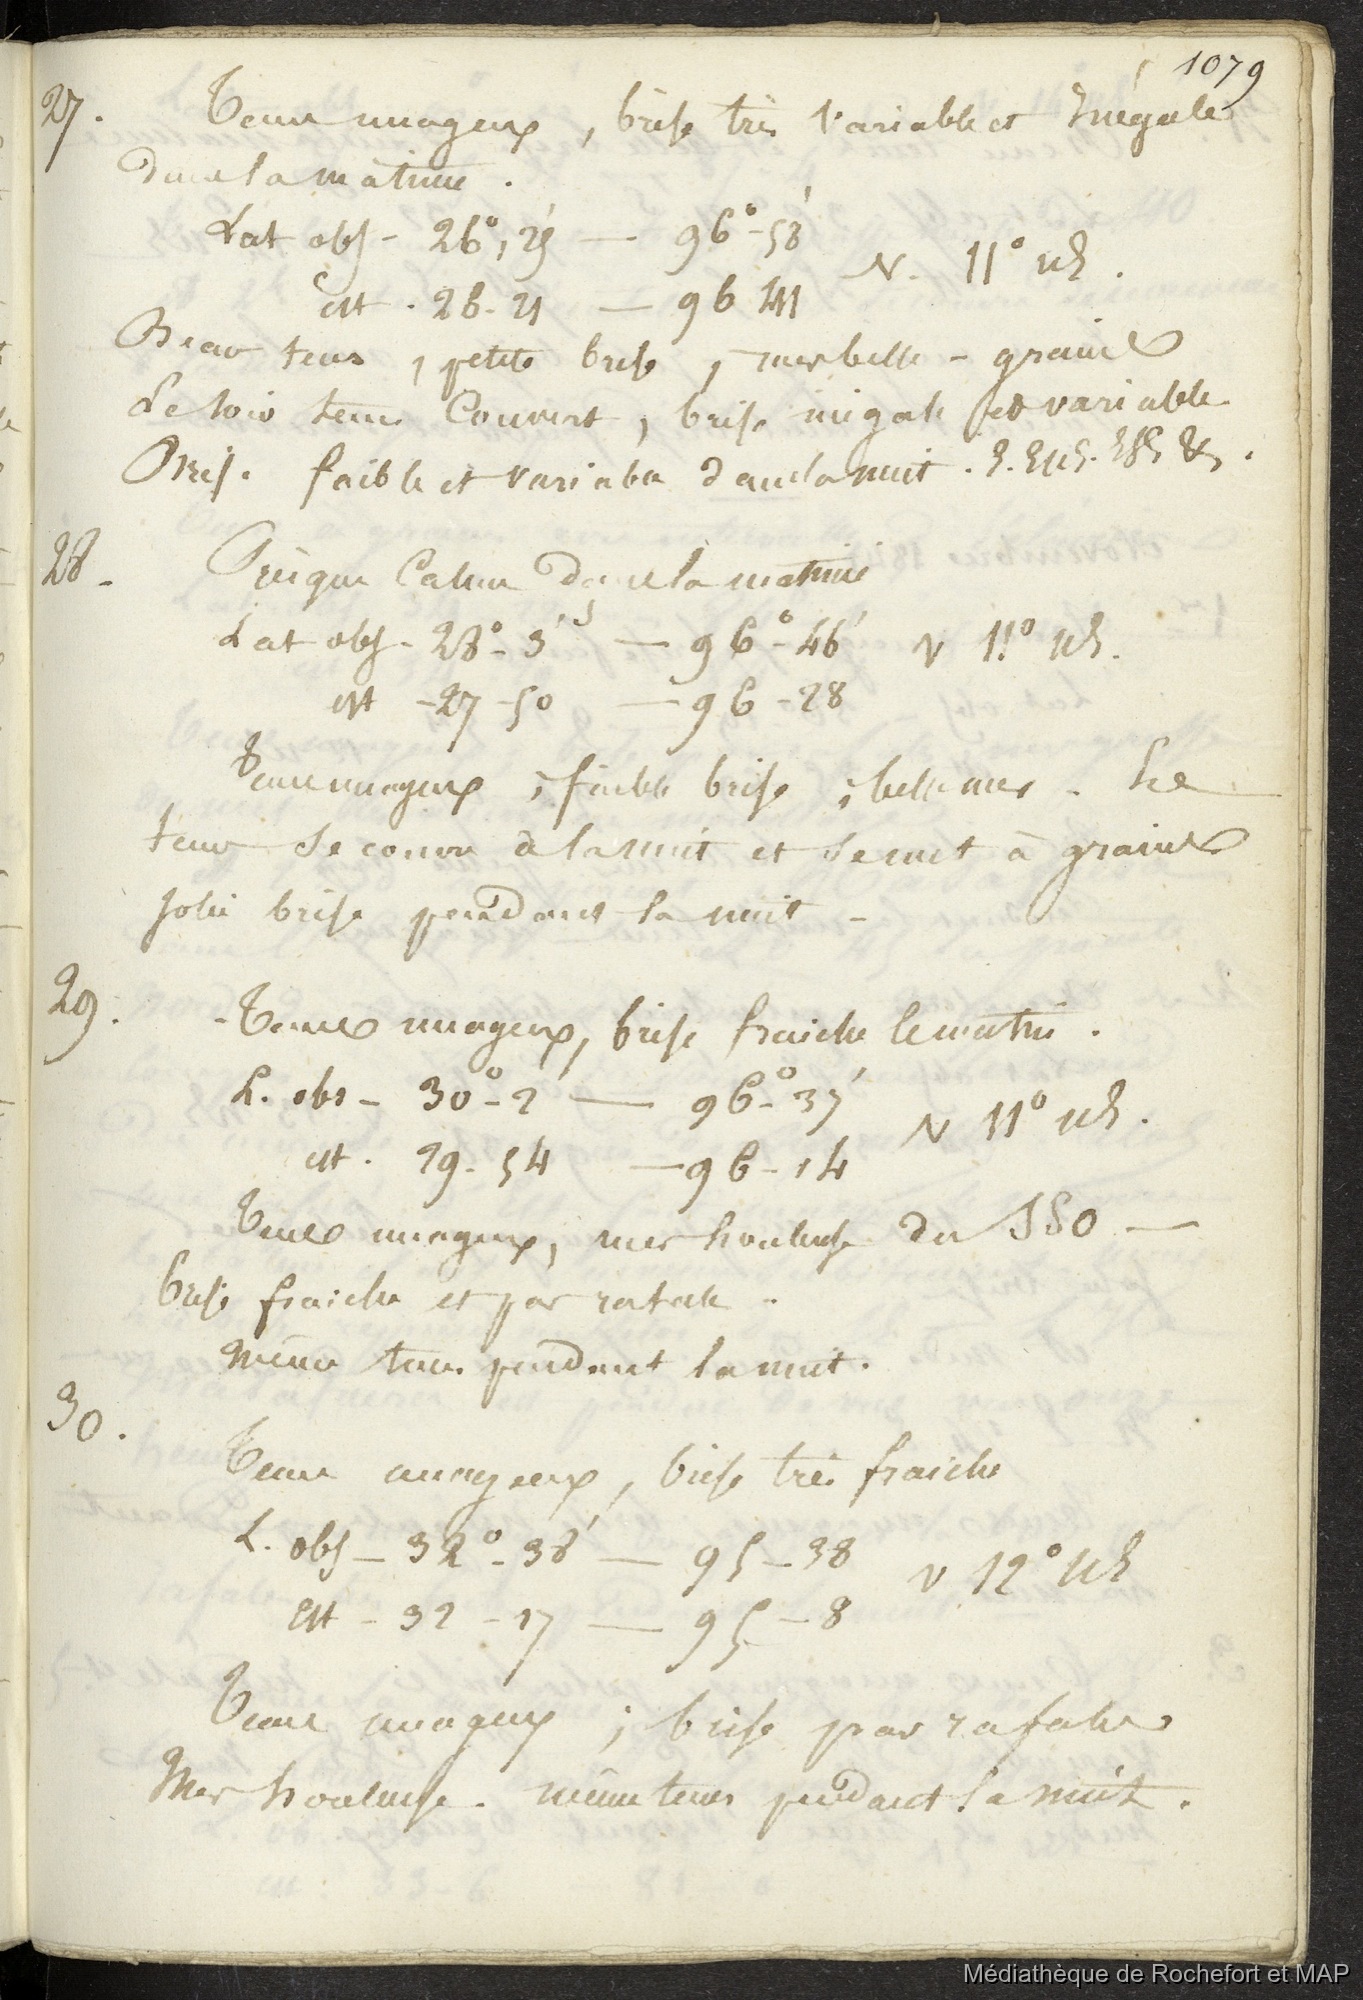 1079
27. Tems nuageux, brise très variable et Inégale
dans la matinée.
Lat obs - 26°, 29' — 96° - 58'
N. 11° NE.
est. - 26 - 21 — 96 41
Beau tems, petite brise, mer belle - grains
Le soir tems Couvert, brise inégale et variable
Brise faible et variable dans la nuit. E. ENE. ESE &.
28 - Presque Calme dans la matinée
Lat obs - 28° - 3' — 96° - 46' v 11° NE.
est - 27 - 50 — 96 - 28
Tems nuageux, faible brise, belle mer. Le
tems se couvre à la nuit et se met à grains
Jolie brise pendant la nuit -
29. - Tems nuageux, brise fraiche le matin.
L. obs - 30° - 2' — 96° - 37'
N 11° NE.
est. 29 - 54 — 96 - 14
Tems nuageux, mer houleuse du SSO —
brise fraiche et par rafale -
même tems pendant la nuit.
30. Tems nuageux, brise très fraiche
L. obs - 32° - 38' — 95 - 38
v 12° NE
est - 32 - 17 — 95 - 8
Tems nuageux, brise par rafales
Mer houleuse. même tems pendant la nuit.
Médiathèque de Rochefort et MAP